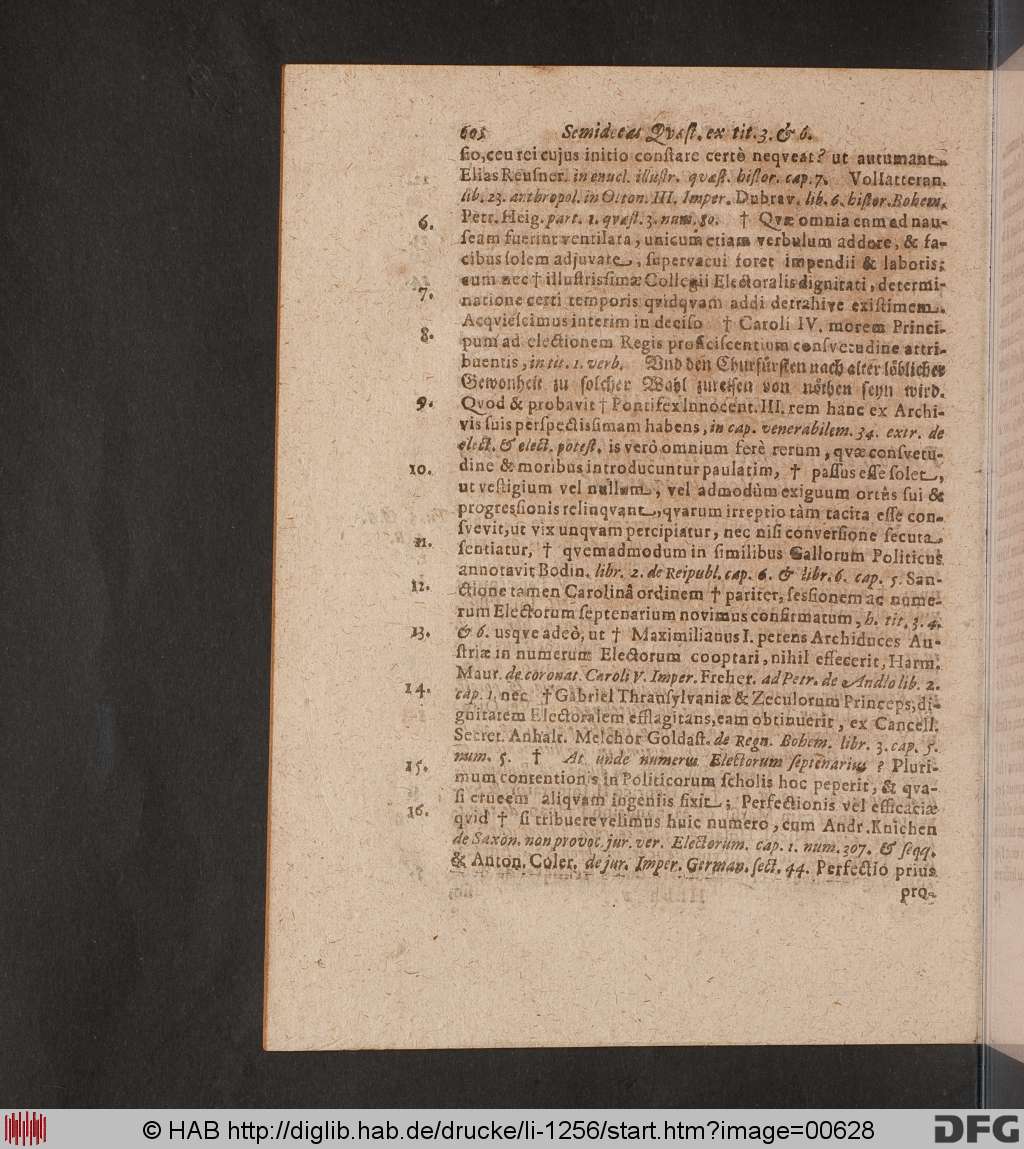 605 Semidecas Qvæst. ex tit. 3. & 6.
sio, ceu rei cujus initio constare certò neqveat? ut autumant
Elias Reusner. in enucl. illustr. quæst. histor. cap. 7. Vollatteran.
lib. 23. anthropol. in Otton. III. Imper. Dubrav. lib. 6. histor. Bohem.
6. Petr. Heig. part. 1. qvæst. 3. num. 80. † Qvæ omnia cum ad nau-
seam fuerint ventilata, unicum etiam verbulum addere, & fa-
cibus solem adjuvate, supervacui foret impendii & laboris;
7. cum nec † illustrissimæ Collegii Electoralis dignitati, determi-
natione certi temporis qvidqvam addi detrahive existimem.
8. Acqviescimus interim in deciso † Caroli IV. morem Princi-
pum ad electionem Regis proficiscentium consvetudine attri-
buentis, in tit. 1. verb. Und den Churfürsten nach alter löblicher
Gewonheit zu solcher Wahl zureisen von nöthen seyn wird.
9. Qvod & probavit † Pontifex Innocent. III. rem hanc ex Archi-
vis suis perspectissimam habens, in cap. venerabilem. 34. extr. de
elect. & elect. potest. is verò omnium ferè rerum, qvæ consvetu-
10. dine & moribus introducuntur paulatim, † passus esse solet,
ut vestigium vel nullum, vel admodùm exiguum ortûs sui &
progressionis relinqvant, qvarum irreptio tàm tacita esse con-
svevit, ut vix unqvam percipiatur, nec nisi conversione secuta
11. sentiatur, † qvemadmodum in similibus Gallorum Politicus
annotavit Bodin. libr. 2. de Reipubl. cap. 6. & libr. 6. cap. 5. San-
12. ctione tamen Carolinâ ordinem † pariter, sessionem ac nume-
rum Electorum septenarium novimus confirmatum, h. tit. 3. 4.
13. & 6. usqve adeò, ut † Maximilianus I. petens Archiduces Au-
striæ in numerum Electorum cooptari, nihil effecerit, Harm.
Maur. de coronat. Caroli V. Imper. Freher. ad Petr. de Andlo lib. 2.
14. cap. 1. nec † Gabriel Thransylvaniæ & Zeculorum Princeps, di-
gnitatem Electoralem efflagitans, eam obtinuerit, ex Cancell.
Secret. Anhalt. Melchor Goldast. de Regn. Bohem. libr. 3. cap. 5.
15. num. 5. † At unde numerus Electorum septenarius? Pluri-
mum contentionis in Politicorum scholis hoc peperit, & qva-
si crucem aliqvam ingeniis fixit; Perfectionis vel efficaciæ
16. qvid † si tribuere velimus huic numero, cum Andr. Knichen
de Saxon. non provoc. jur. ver. Electorum. cap. 1. num. 307. & seqq.
& Anton. Coler. de jur. Imper. German. sect. 44. Perfectio prius
pro-
© HAB http://diglib.hab.de/drucke/li-1256/start.htm?image=00628
DFG